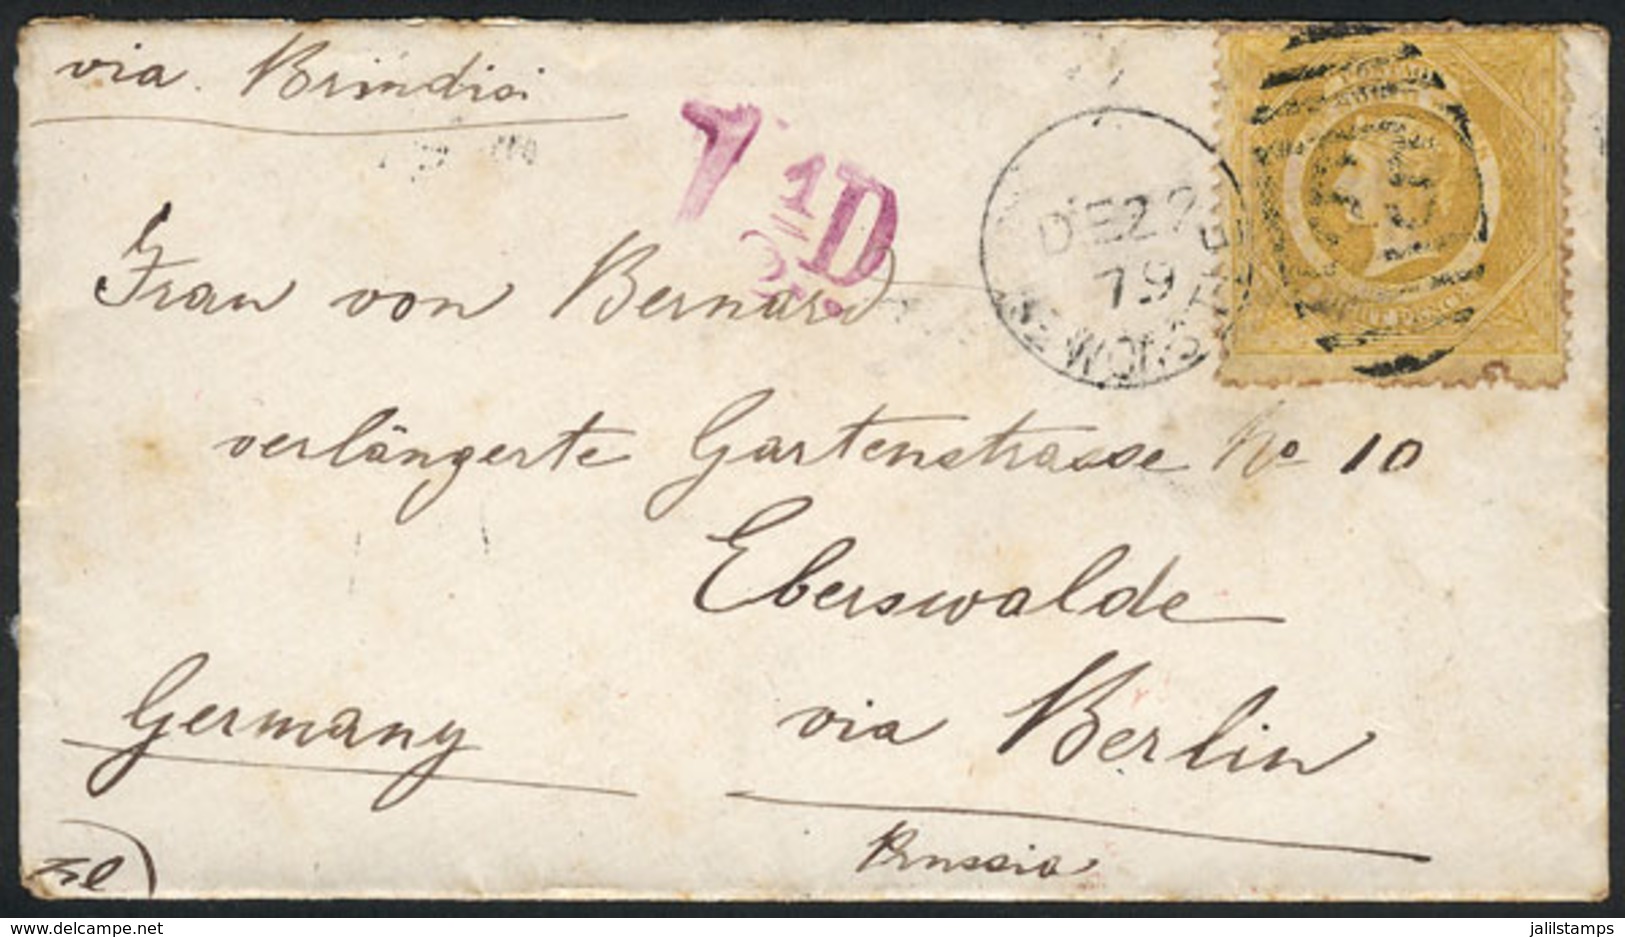 via Brindisi
7 1/2 D
DE 22
79
Frau von Bernard
verlängerte Gartenstrasse No 10
Eberswalde
Germany
via Berlin
Prussia
jalilstamps